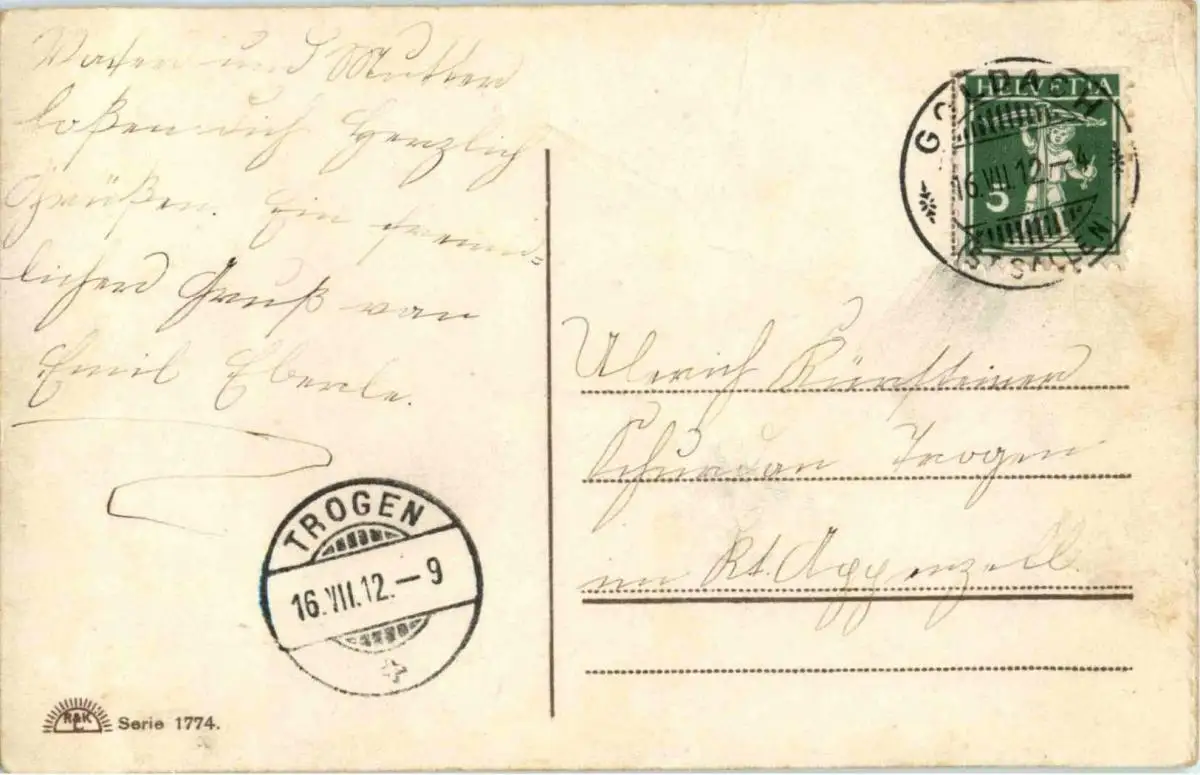 Vater und Mutter
loßen dich Herzlich
Grüßen. Ein freund-
licher Gruß von
Emil Eberle.
HELVETIA
5
GOLDACH
16.VIII.12.–4
(ST. GALLEN)
Ulrich Kürsteiner
Schurtan Trogen
im Kt. Appenzell.
TROGEN
16.VIII.12.–9
R&K
L.
Serie 1774.